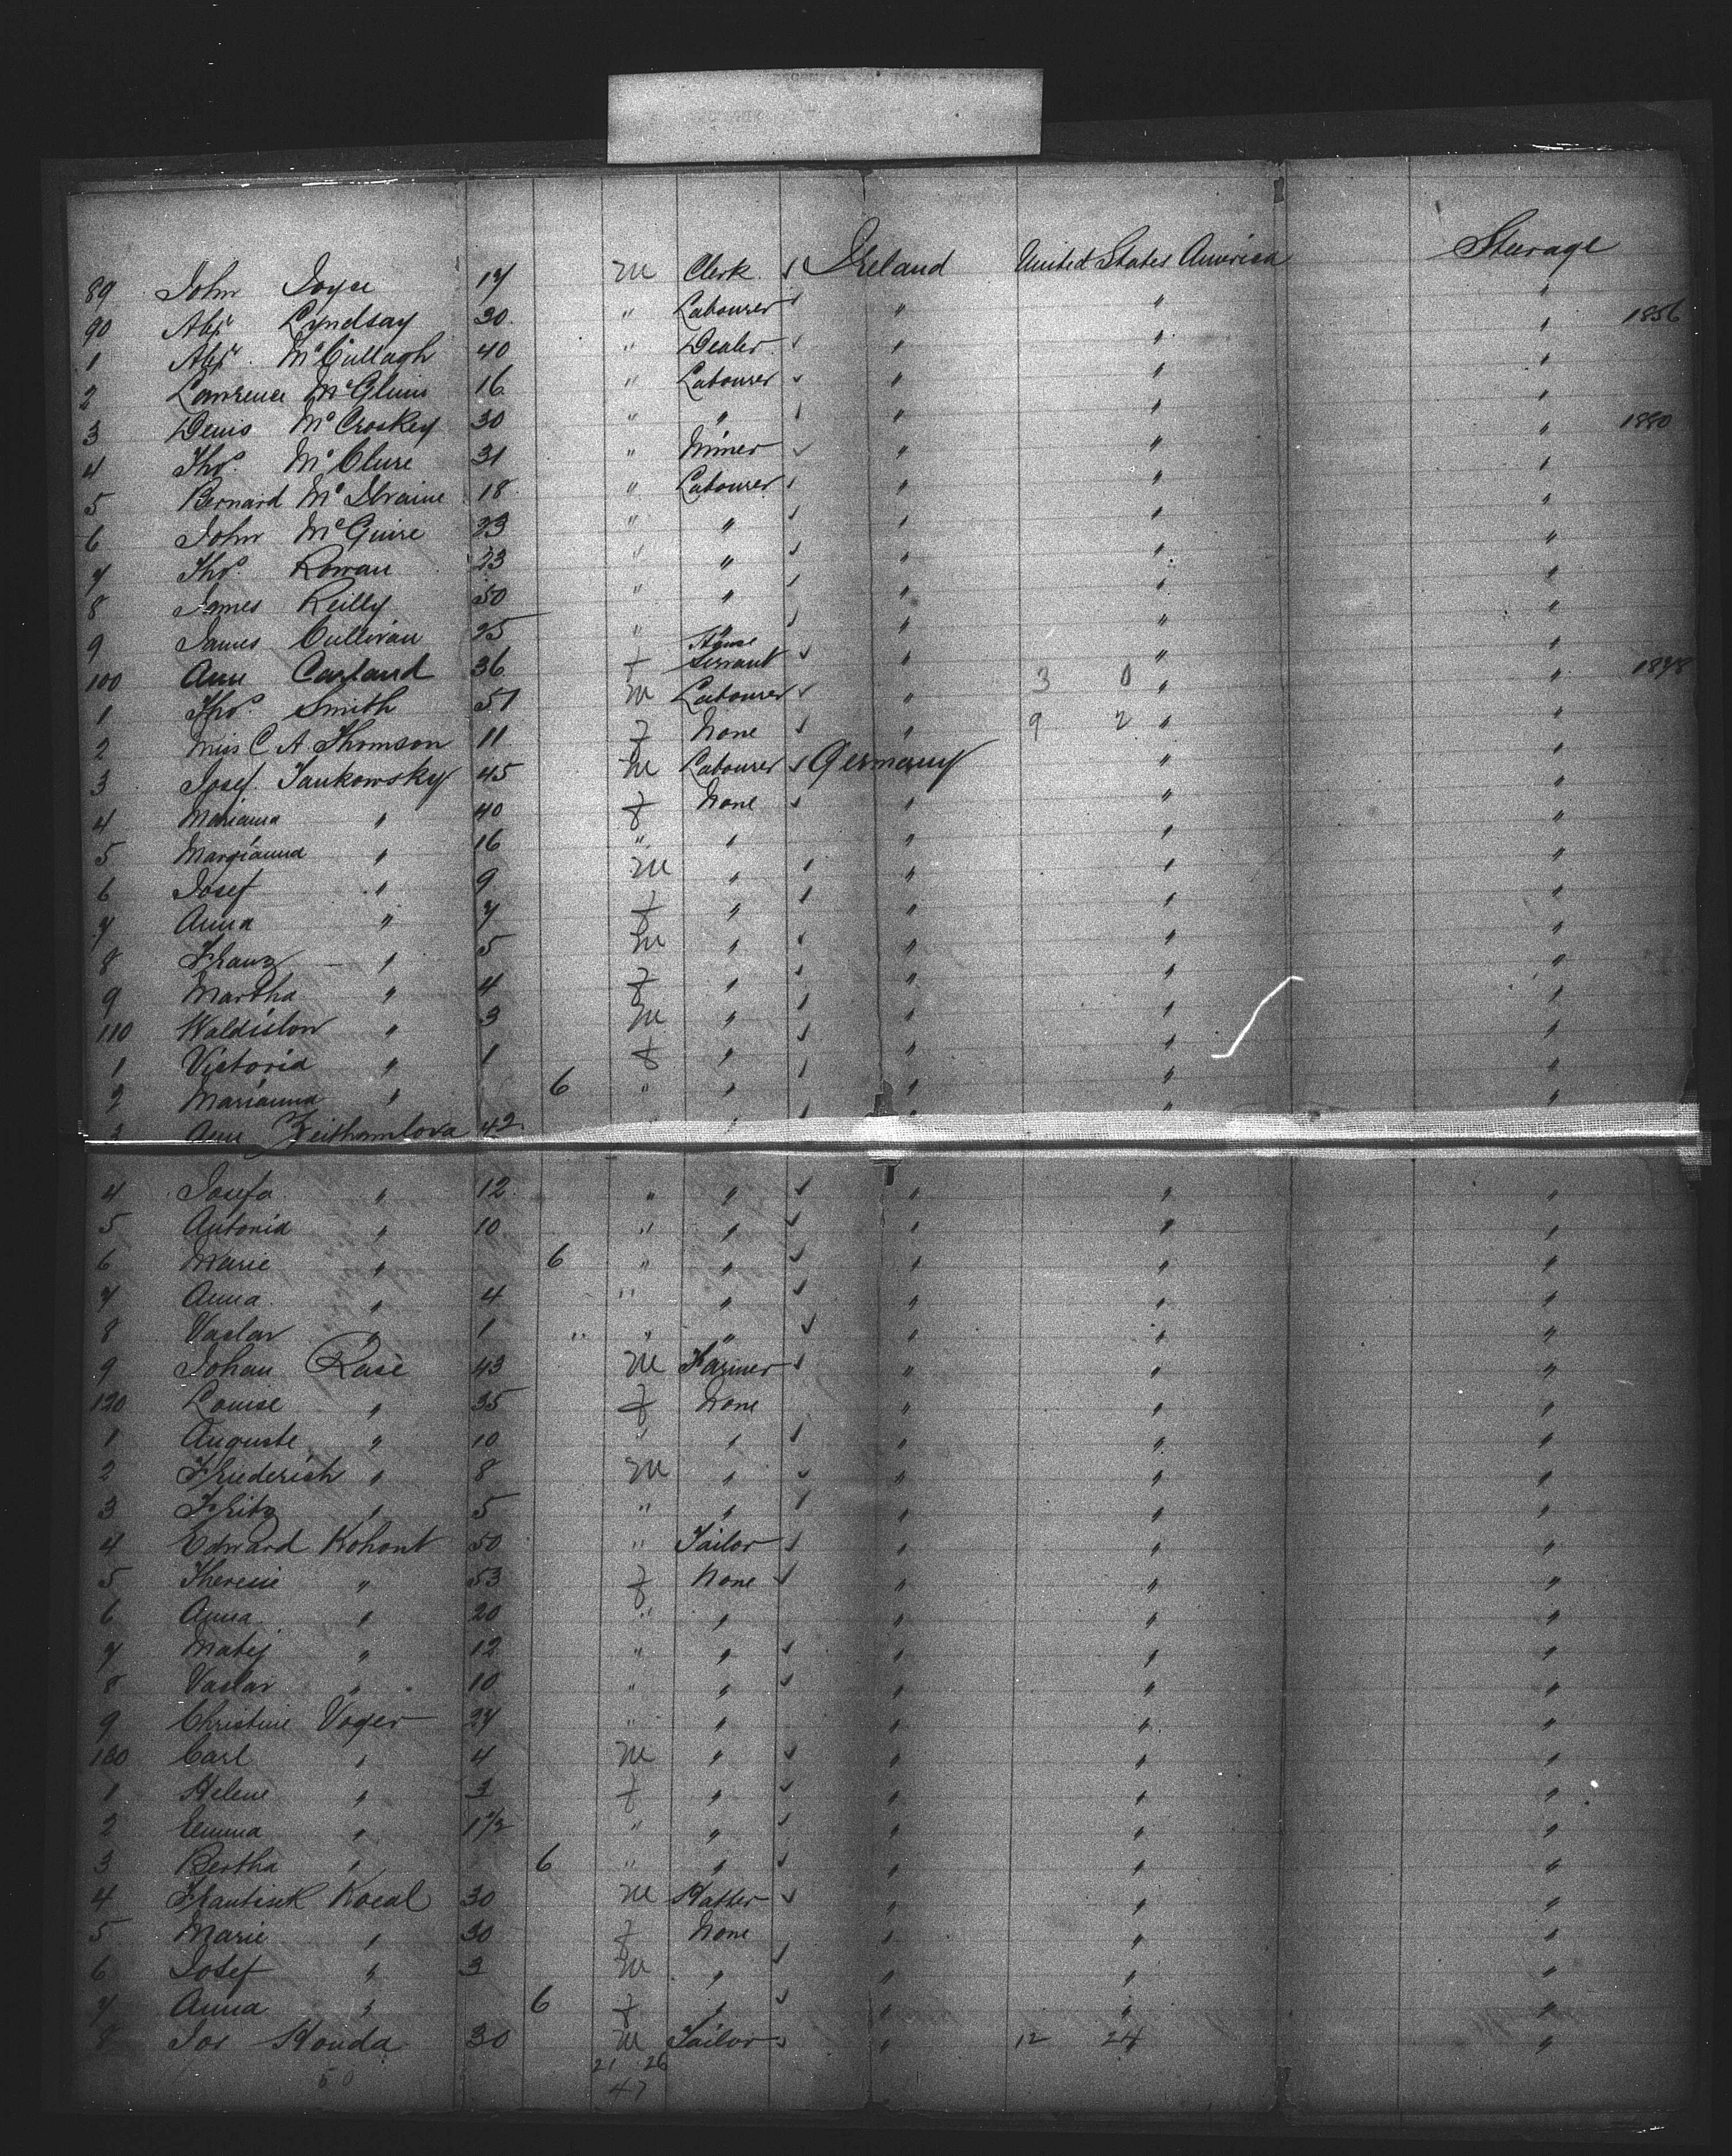 89 John Joyce 17 M Clerk ✓ Ireland United States America Steerage
90 Alexr Lyndsay 30 " Labourer ✓ " " " 1856
1 Alexr McCullagh 40 " Dealer ✓ " " "
2 Lawrence McGlinis 16 " Labourer ✓ " " "
3 Denis McCroskey 30 " " ✓ " " " 1880
4 Thos McClure 31 " Miner ✓ " " "
5 Bernard McIlvaine 18 " Labourer ✓ " " "
6 John McGuire 23 " " ✓ " " "
7 Thos Rowan 23 " " ✓ " " "
8 James Reilly 50 " " ✓ " " "
9 James Cullivan 25 " " ✓ " " "
100 Ann Carland 36 f House Servant ✓ " " " 1878
1 Thos Smith 51 M Labourer ✓ " 3 0 " "
2 Miss C. A. Thomson 11 f None ✓ " 9 2 " "
3 Josef Jankowsky 45 M Labourer ✓ Germany " "
4 Marianna " 40 f None ✓ " " "
5 Margianna " 16 " " " " "
6 Josef " 9 M " ✓ " " "
7 Anna " 7 f " ✓ " " "
8 Franz " 5 M " ✓ " " "
9 Martha " 4 f " ✓ " " "
110 Waldislow " 3 M " ✓ " " "
1 Victoria " 1 f " ✓ " " "
2 Marianna " 6 " " ✓ " " "
3 Ann Zeithamlova 42 " " ✓ "
4 Josefa " 12 " " ✓ " " "
5 Antonia " 10 " " ✓ " " "
6 Marie " 6 " " ✓ " " "
7 Anna " 4 " " ✓ " " "
8 Vaslav " 1 " " " ✓ " " "
9 Johan Rase 43 M Farmer ✓ " " "
120 Louise " 35 f None " " "
1 Auguste " 10 " " ✓ " " "
2 Friederich " 8 M " ✓ " " "
3 Fritz " 5 " " ✓ " " "
4 Edward Kohout 50 " Tailor ✓ " " "
5 Theresie " 53 f None ✓ " " "
6 Anna " 20 " " " " "
7 Matej " 12 " " ✓ " " "
8 Vaslav " 10 " " ✓ " " "
9 Christine Voger 27 " " " " "
130 Carl " 4 M " ✓ " " "
1 Helene " 3 f " ✓ " " "
2 Emma " 1 1/2 " " ✓ " " "
3 Bertha " 6 " " ✓ " " "
4 Frantisek Kocal 30 M Hatter ✓ " " "
5 Marie " 30 f None " " "
6 Josef " 3 M " ✓ " " "
7 Anna " 6 f " ✓ " " "
8 Jos Houda 30 M Tailor ✓ " 12 24 "
50 21 26
47